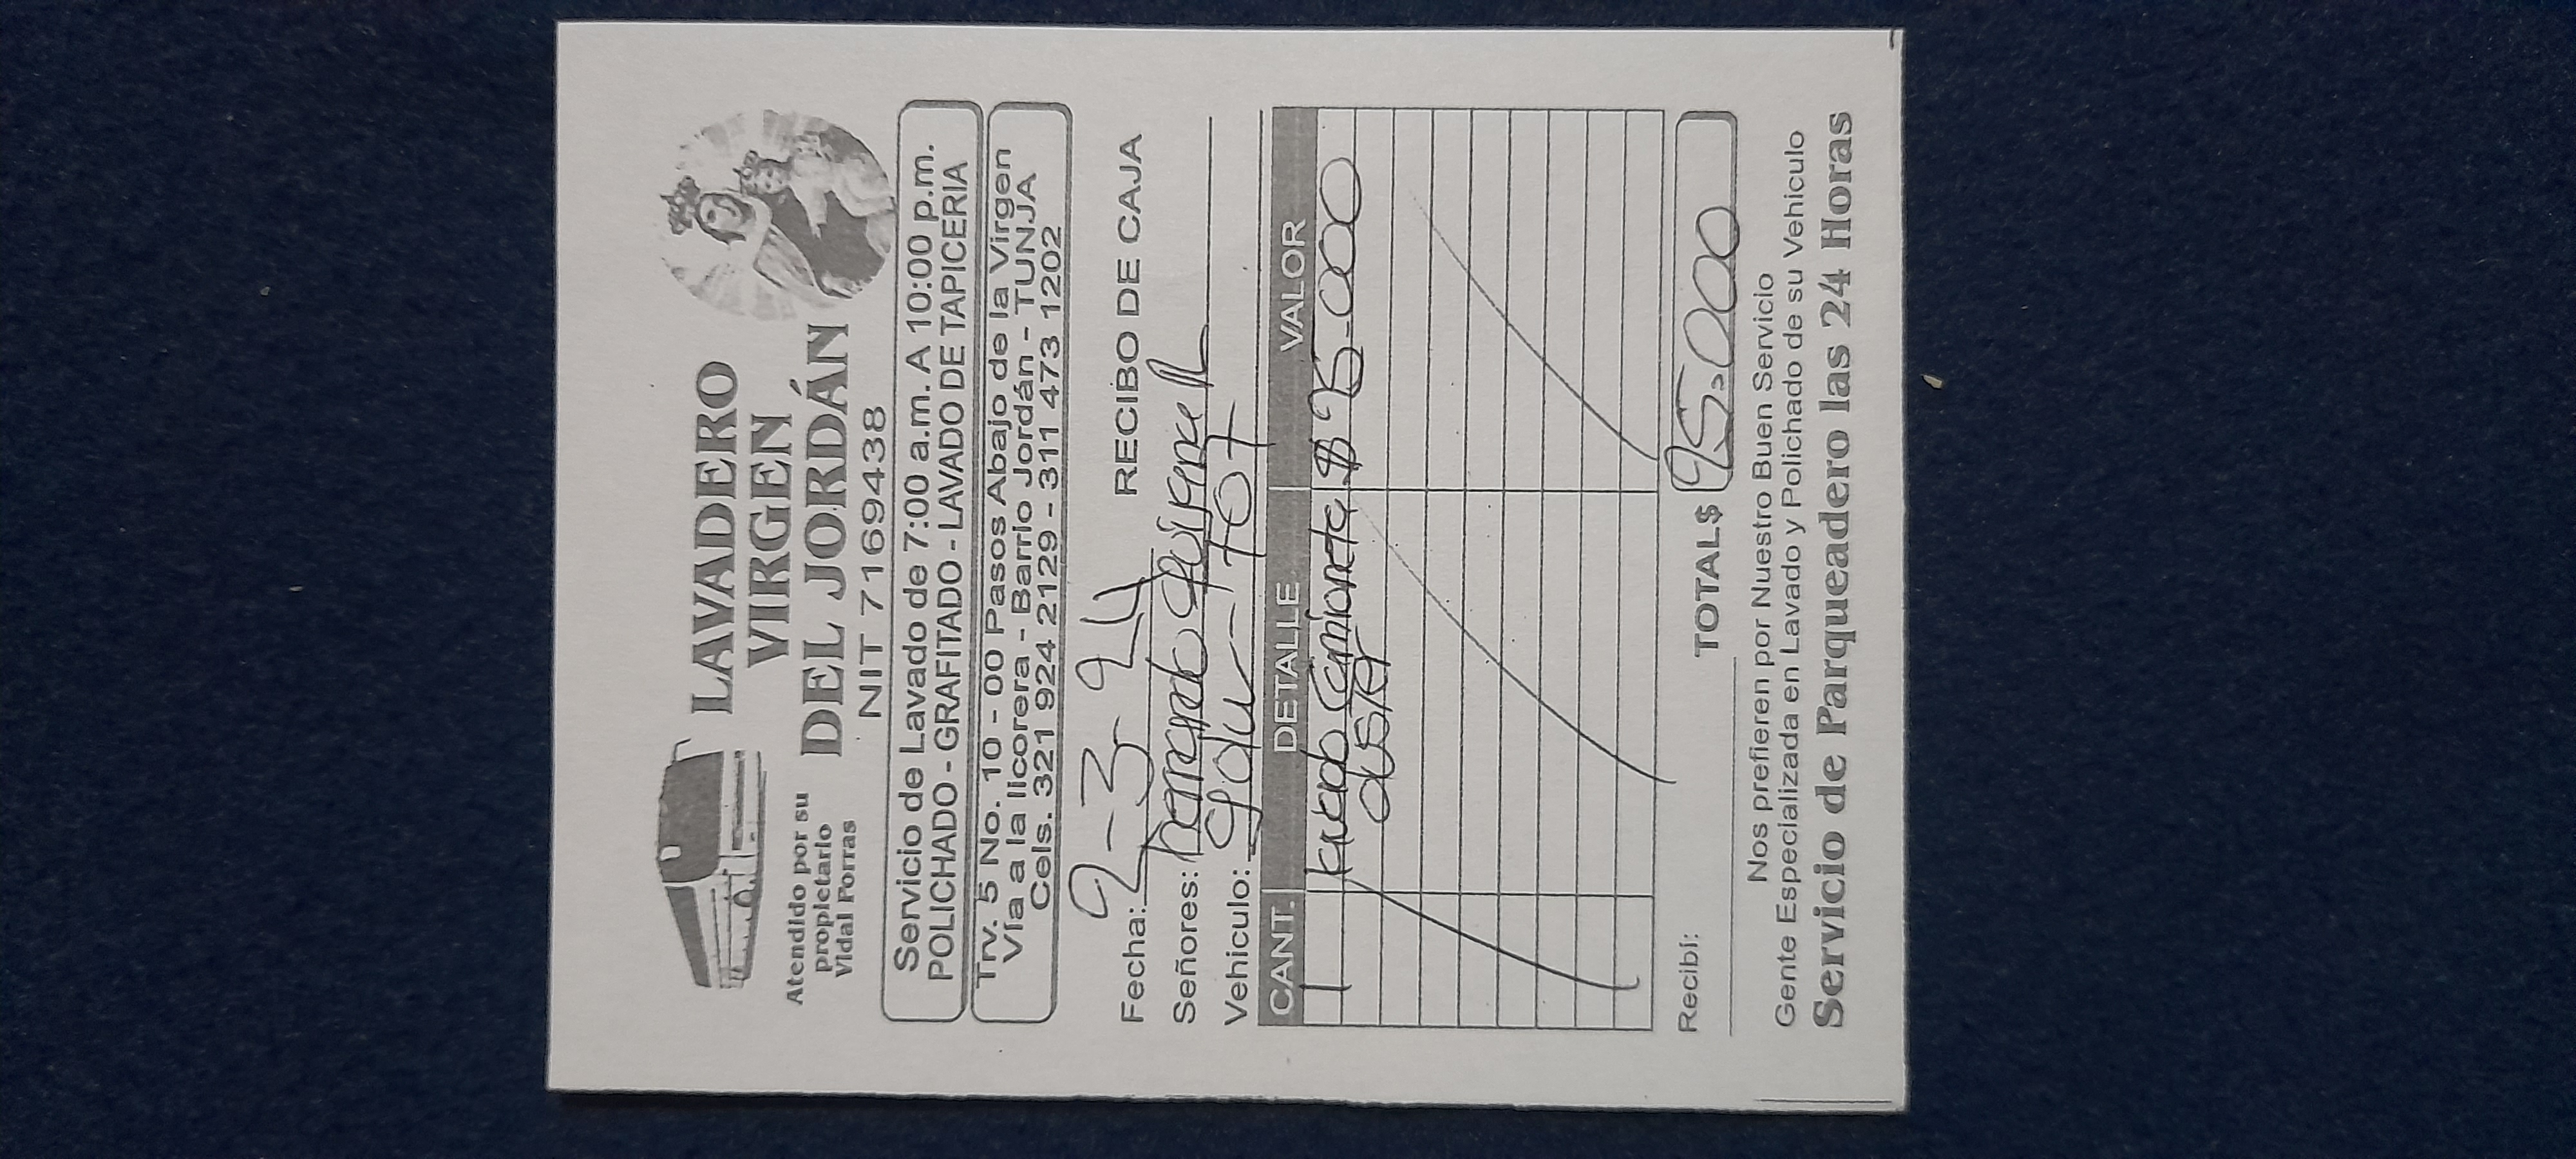 LAVADERO
VIRGEN
DEL JORDÁN
Atendido por su
propietario
Vidal Porras
NIT 7169438
Servicio de Lavado de 7:00 a.m. A 10:00 p.m.
POLICHADO - GRAFITADO - LAVADO DE TAPICERIA
Trv. 5 No. 10 - 00 Pasos Abajo de la Virgen
Vía a la licorera - Barrio Jordán - TUNJA
Cels. 321 924 2129 - 311 473 1202
Fecha: 9-3-24 RECIBO DE CAJA
Señores:
Vehiculo:
CANT. DETALLE VALOR
1 Lavado Camioneta $ 95.000
DUSTER
Recibí: TOTAL$ 95.000
Nos prefieren por Nuestro Buen Servicio
Gente Especializada en Lavado y Polichado de su Vehiculo
Servicio de Parqueadero las 24 Horas